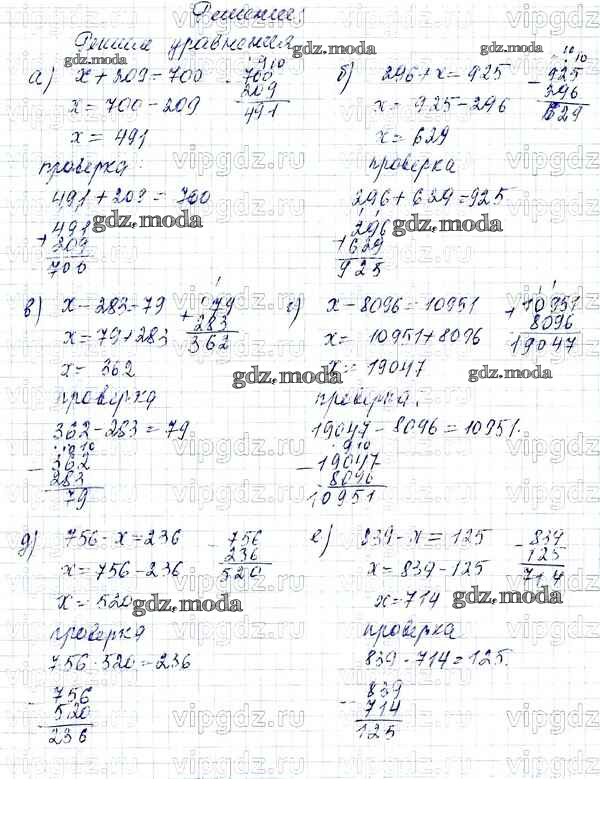 Решение:
Решим уравнения
а) x + 209 = 700
x = 700 - 209
x = 491
проверка:
491 + 209 = 700
491
+
209
700
910
- 700
209
491
б) 296 + x = 925
x = 925 - 296
x = 629
проверка
296 + 629 = 925
296
+ 629
925
10 10
- 925
296
629
в) x - 283 = 79
x = 79 + 283
x = 362
проверка
362 - 283 = 79
- 362
283
79
+ 79
283
362
г) x - 8096 = 10951
x = 10951 + 8096
x = 19047
проверка.
19047 - 8096 = 10951.
910
- 19047
8096
10951
1 1
+ 10951
8096
19047
д) 756 - x = 236
x = 756 - 236
x = 520
проверка
756 - 520 = 236
- 756
520
236
- 756
236
520
е) 839 - x = 125
x = 839 - 125
x = 714
проверка
839 - 714 = 125.
- 839
714
125
- 839
125
714
gdz.moda
vipgdz.ru